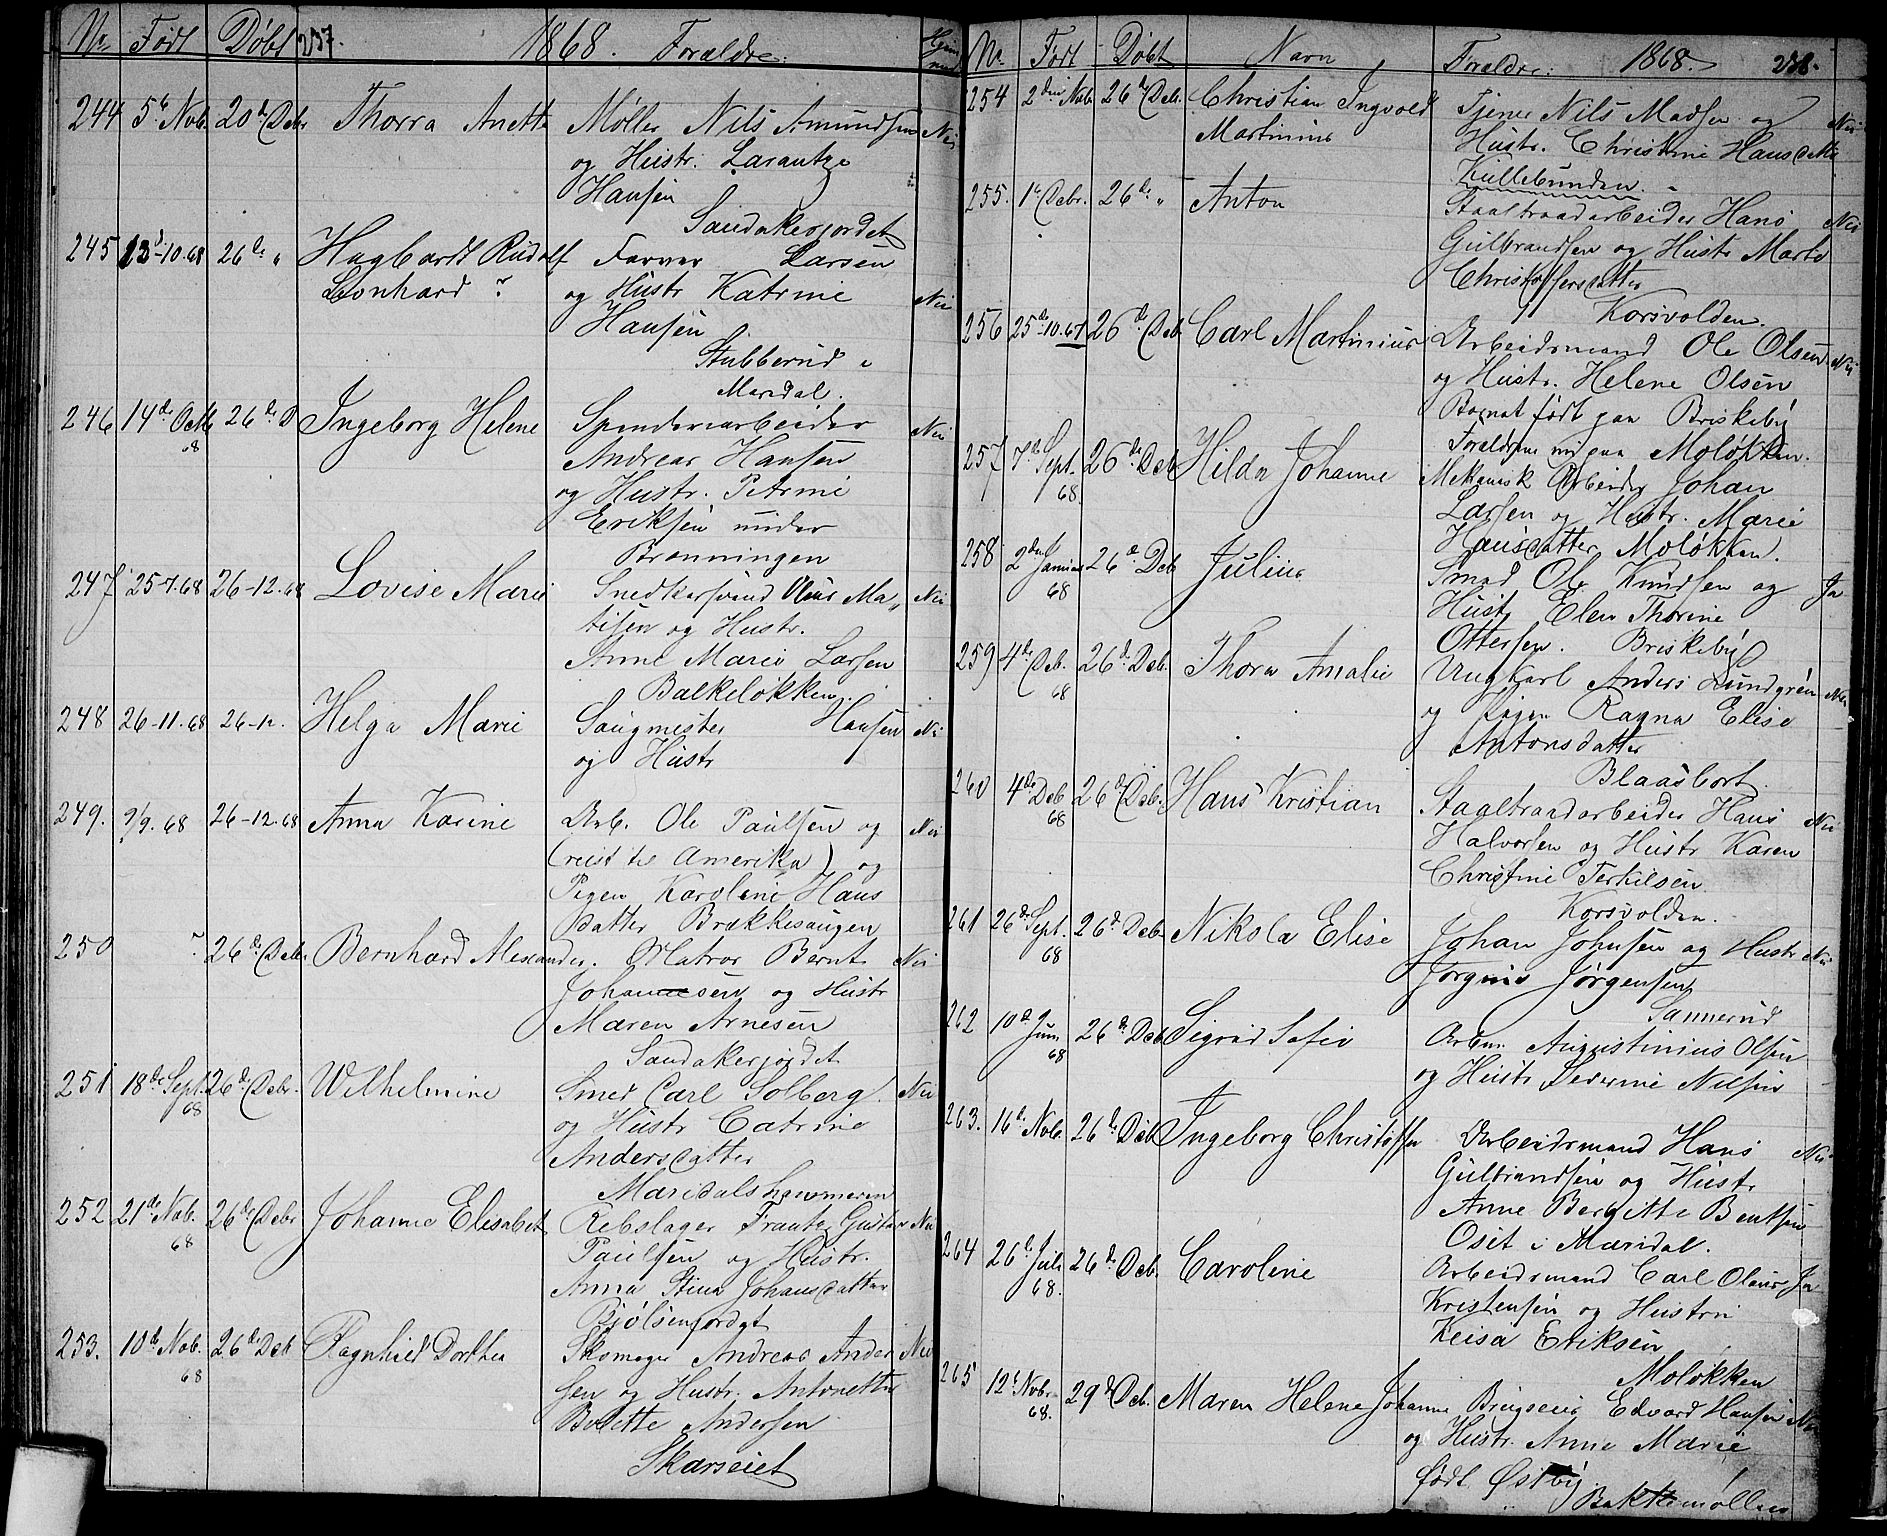 Nr. Født Døbt 257. 1868. Forældre.
244 5te Nob. 20de Debr Thorra Anette Møller Nils Amundsen Nei
og Hustr. Larantze
Hansen
Sandakerjordet
245 13-10-68 26de " Hagbardt Rudolf Farver Larsen
Leonhard ? og Hustr Katrine Nei
Hansen
Stubberud i
Maridal.
246 14de Octb 68 26de D Ingeborg Helene Spinderiarbeider Nei
Andreas Hansen
og Hustr. Petrine
Eriksen under
Brænningen
247 25-7-68 26-12-68 Lovise Marie Snedkersvend Olaus Ma„ Nei
tisen og Hustr.
Anne Marie Larsen
Balkeløkken.
248 26-11-68 26-12. Helga Marie Saugmester Hansen Nei
og Hustr
249. 9/9. 68 26-12-68 Anna Karine Arb. Ole Paulsen og Nei
(reist til Amerika) og
Pigen Karoline Hans
datter Brækkesaugen
250 ? 26de Debr Bernhard Alexander. Matros Bernt Nei
Johannesen og Hustr
Maren Arnesen
Sandakerjordet
251 18de Sept. 68 26de Debr. Wilhelmine Smed Carl Solberg Nei
og Hustr Catrine
Andersdatter
Maridalshammeren
252 21de Nob. 68 26de Debr Johanne Elisabet Rebslager Frantz Gustav Nei
Paulsen og Hustr.
Anna Stina Johansdatter
Bjølsenjordet
253. 10de Nob. 68 26de Deb Ragnhild Dorthea Skomager Andreas Ander Nei
sen og Hustr. Antonette
Bolette Andersen
Skarseiet
Nr. Født Døbt Navn Forældre. 1868. 258.
254 2den Nob. 26de Debr. Christian Ingvold Tjener Nils Madsen og Nei
Martinius Hustr. Christine Hansdatter
Kullebunden.
255. 1te Debr. 26de " Anton Staaltraadarbeider Hans Nei
Gulbrandsen og Hustr Marte
Christoffersdatter
Korsvolden.
256 25de-10.67 26de Deb. Carl Martinius Arbeidsmand Ole Olsen Nei
og Hustr. Helene Olsen
Barnet født paa Briskeby
Forældrene nu paa Moløkken.
257 7de Sept. 68. 26de Deb Hilda Johanne Mekanisk Arbeider Johan
Larsen og Hustr. Marie
Hansdatter Moløkken.
258 2den Januar 68 26de Deb Julius Smed Ole Knudsen og Ja
Hustr Elen Thorine
Ottersen. Briskeby
259 4de Deb. 68 26de Deb. Thora Amalie Ungkarl Anders Lundgren Nei
og Pigen Ragna Elise
Antonsdatter
Blaasbort.
260 4de Deb 68 26de Deb. Hans Kristian Staaltraadarbeider Hans Nei
Halvorsen og Hustr Karen
Christine Terkilsen
Korsvolden.
261 26de Sept. 68 26de Deb. Nikola Elise Johan Johnsen og Hustr Nei
Jørgine Jørgensen
Sannerud
262 10de Juni 68 26de Deb Sigrid Sofie Arbm. Augustinius Olsen
og Hustr Severine Nilsen
263. 16de Nob. 26de Deb Ingeborg Christoffa Arbeidsmand Hans Nei
Gulbrandsen og Hustr
Anne Bergitte Bentsen
Oset i Maridal.
264 26de Juli 68. 26de Deb. Caroline Arbeidsmand Carl Olaus Ja
Kristensen og Hustru
Keisa Eriksen
Moløkken
265 12te Nobr. 68. 29de Deb. Maren Helene Johanne Brugseier Edvard Hansen Nei
og Hustr. Anne Marie
født Østby
Bakkemøllen